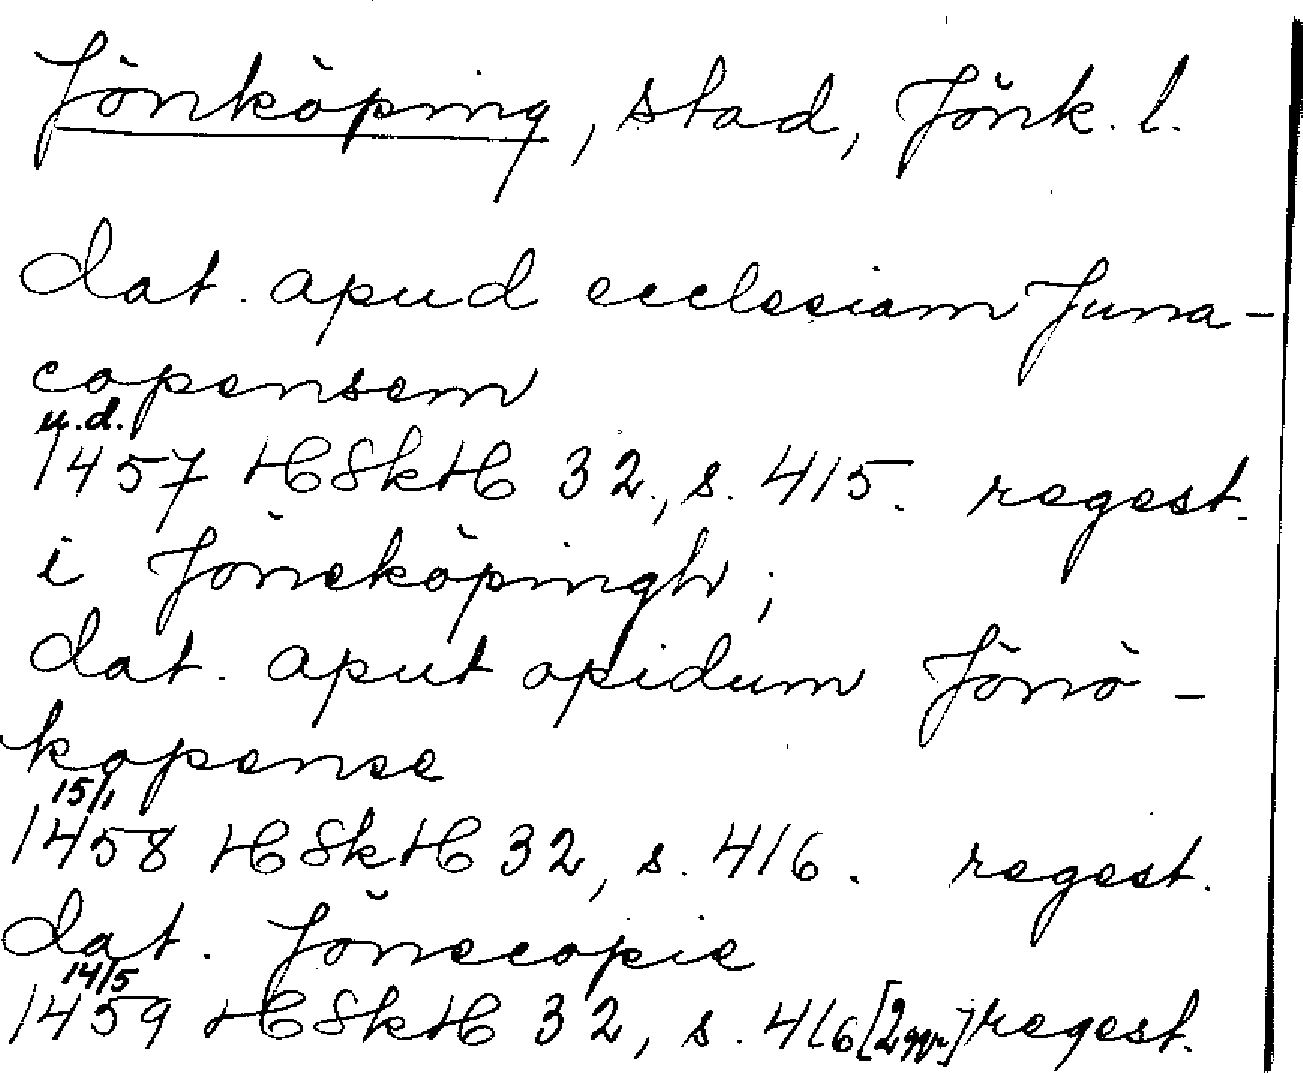 Jönköping, stad, Jönk. l.
dat. apud ecclesiam Juna-
copensem
u.d.
1457 HSkH 32, s. 415. regest.
i Jöneköpingh;
dat. aput opidum Jönö-
kopense
15/1
1458 HSkH 32, s. 416. regest.
dat. Jönecopie
14/5
1459 HSkH 32, s. 416 [2 ggr] regest.